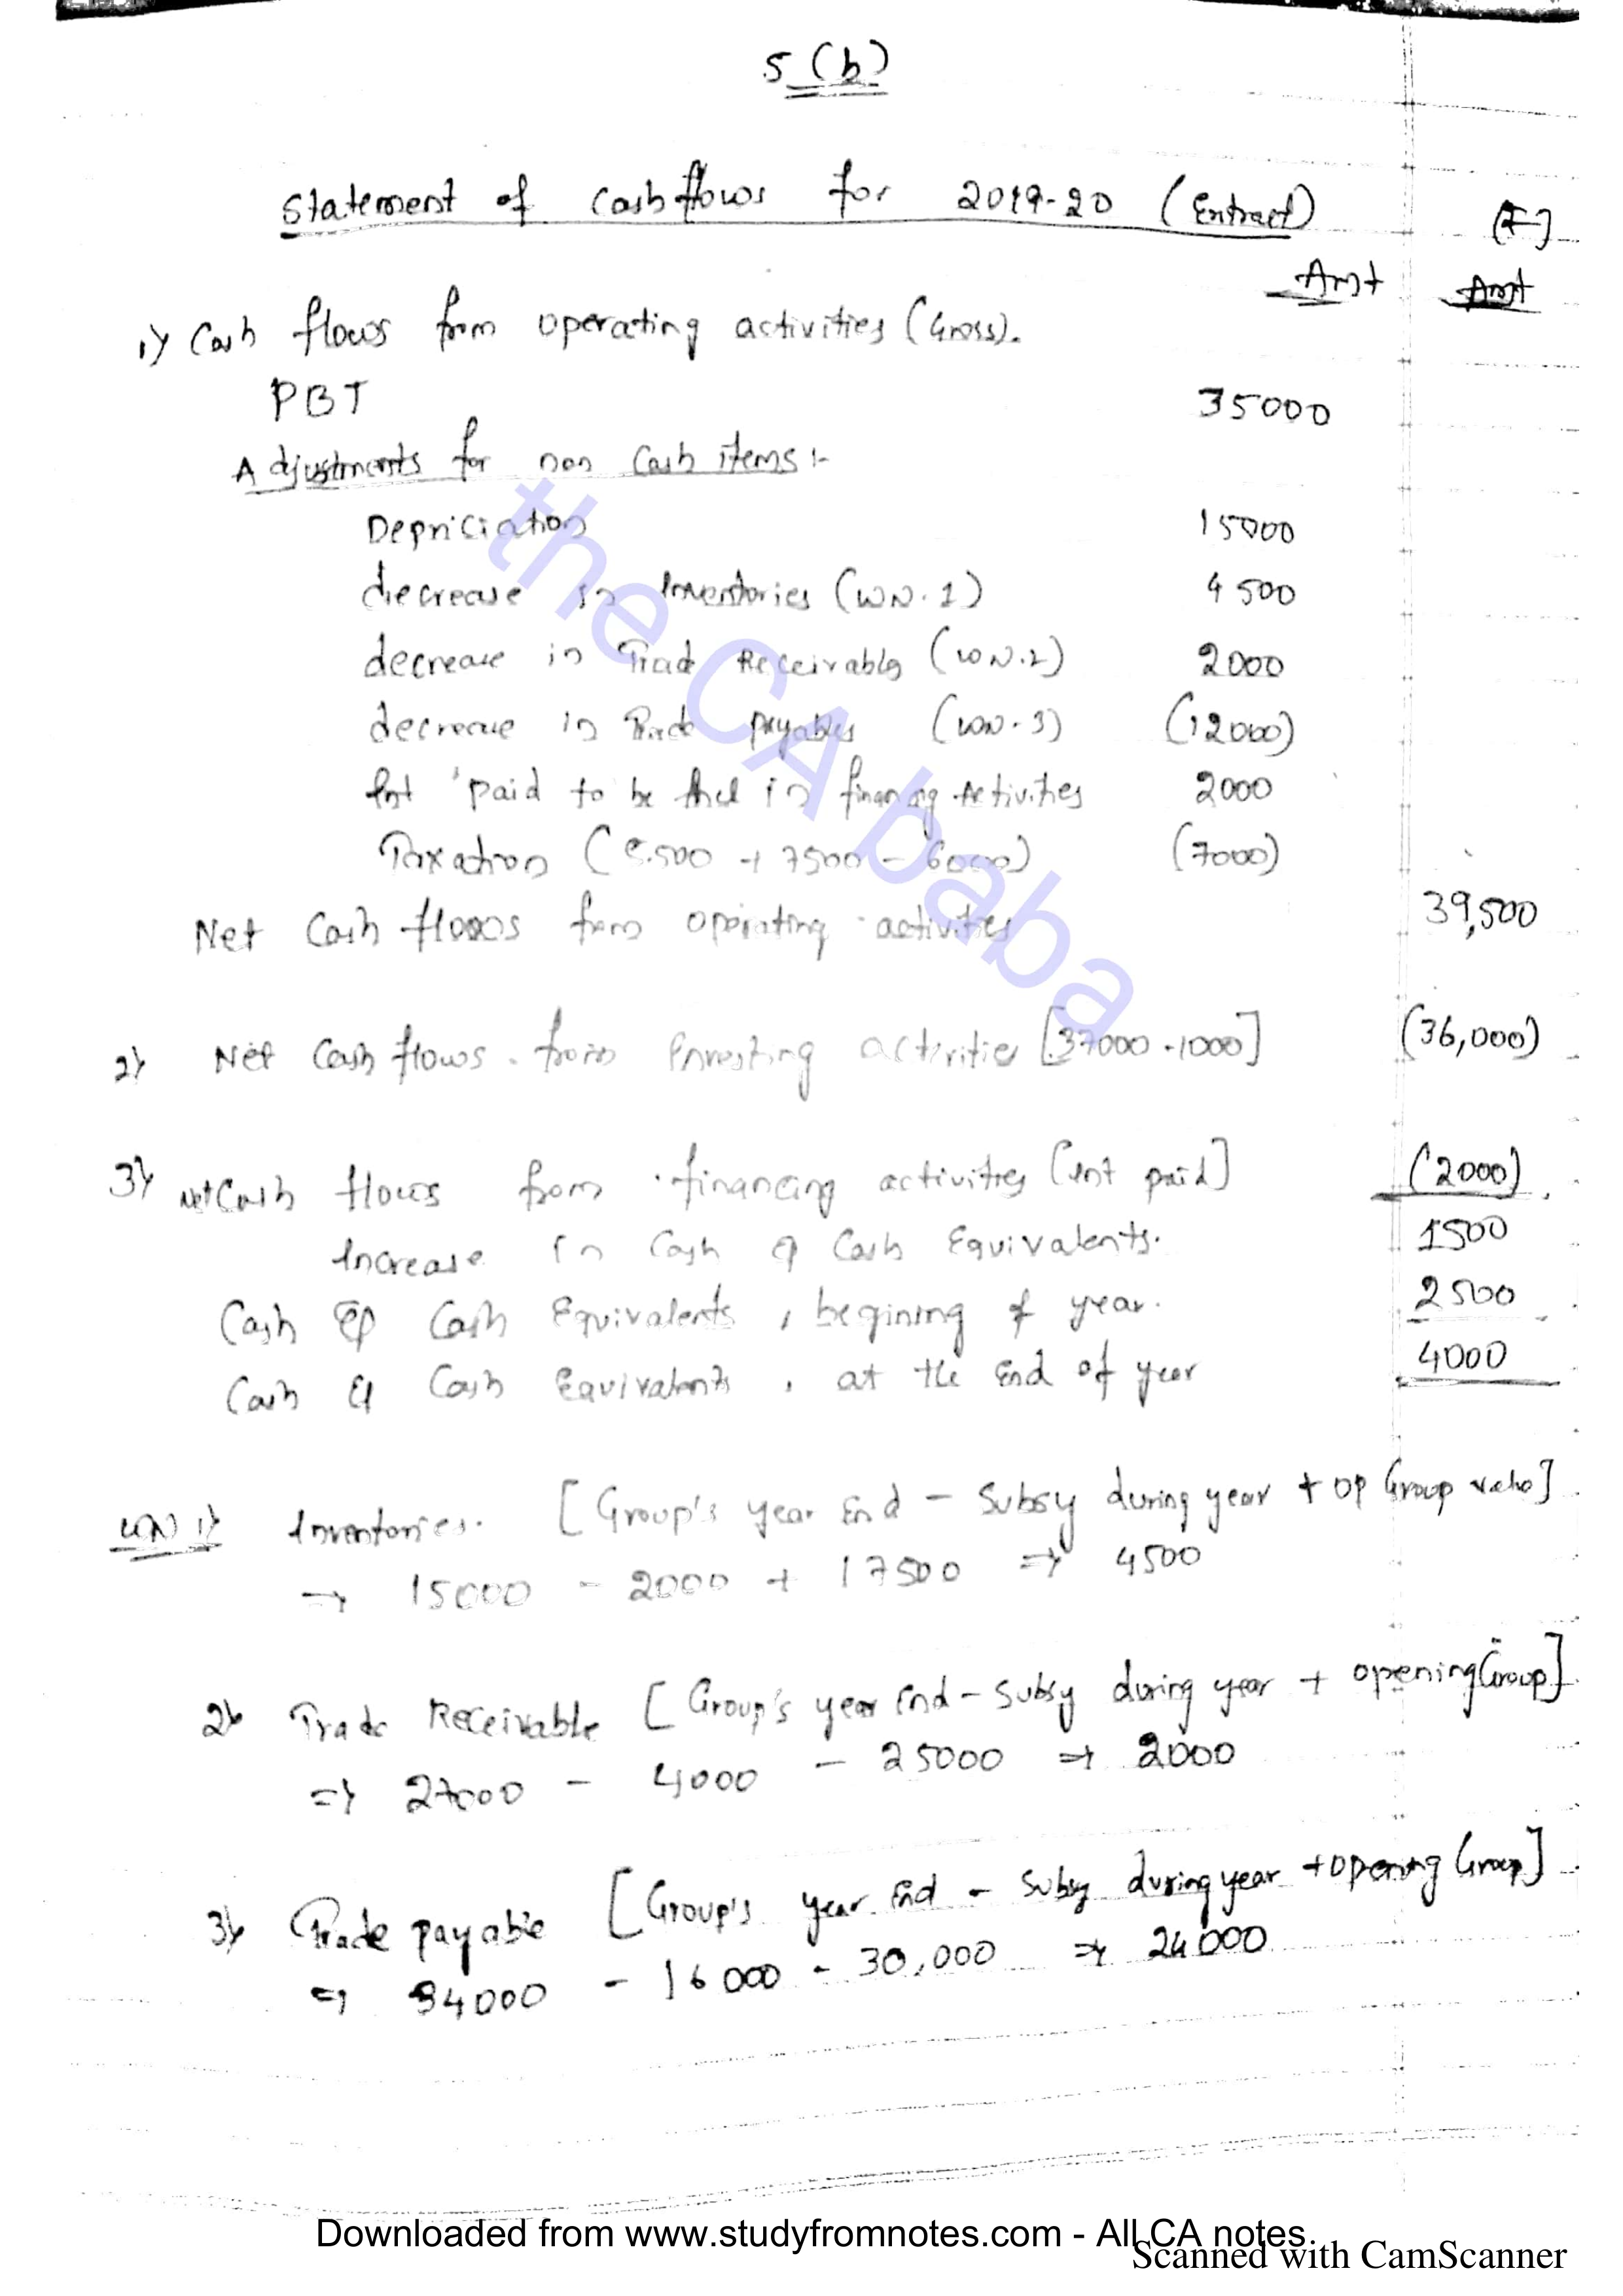 5 (b)
Statement of Cash flows for 2019-20 (Extract)
[₹]
Amt Amt
1) Cash flows from operating activities (Gross).
PBT 35000
Adjustments for non Cash items :-
Depriciation 15000
decrease in Inventories (WN.1) 4500
decrease in Trade Receivables (WN.2) 2000
decrease in Trade payables (WN.3) (12000)
Int paid to be in financing Activities 2000
Taxation ( + 7500 - 6000) (7000)
Net Cash flows from operating activities 39,500
2) Net Cash flows from Investing activities [37000-1000] (36,000)
3) Net Cash flows from financing activities [Int paid] (2000)
Increase in Cash & Cash Equivalents. 1500
Cash & Cash Equivalents, begining of year. 2500
Cash & Cash Equivalents, at the End of year 4000
WN 1) Inventories. [Group's year End - Subsy during year + op Group]
→ 15000 - 2000 + 17500 ⇒ 4500
2) Trade Receivable [Group's year End - Subsy during year + opening Group]
⇒ 27000 - 4000 - 25000 ⇒ 2000
3) Trade payable [Group's year End - Subsy during year + opening Group]
⇒ 34000 - 16000 - 30,000 ⇒ 24000
the CA baba
Downloaded from www.studyfromnotes.com - All CA notes
Scanned with CamScanner